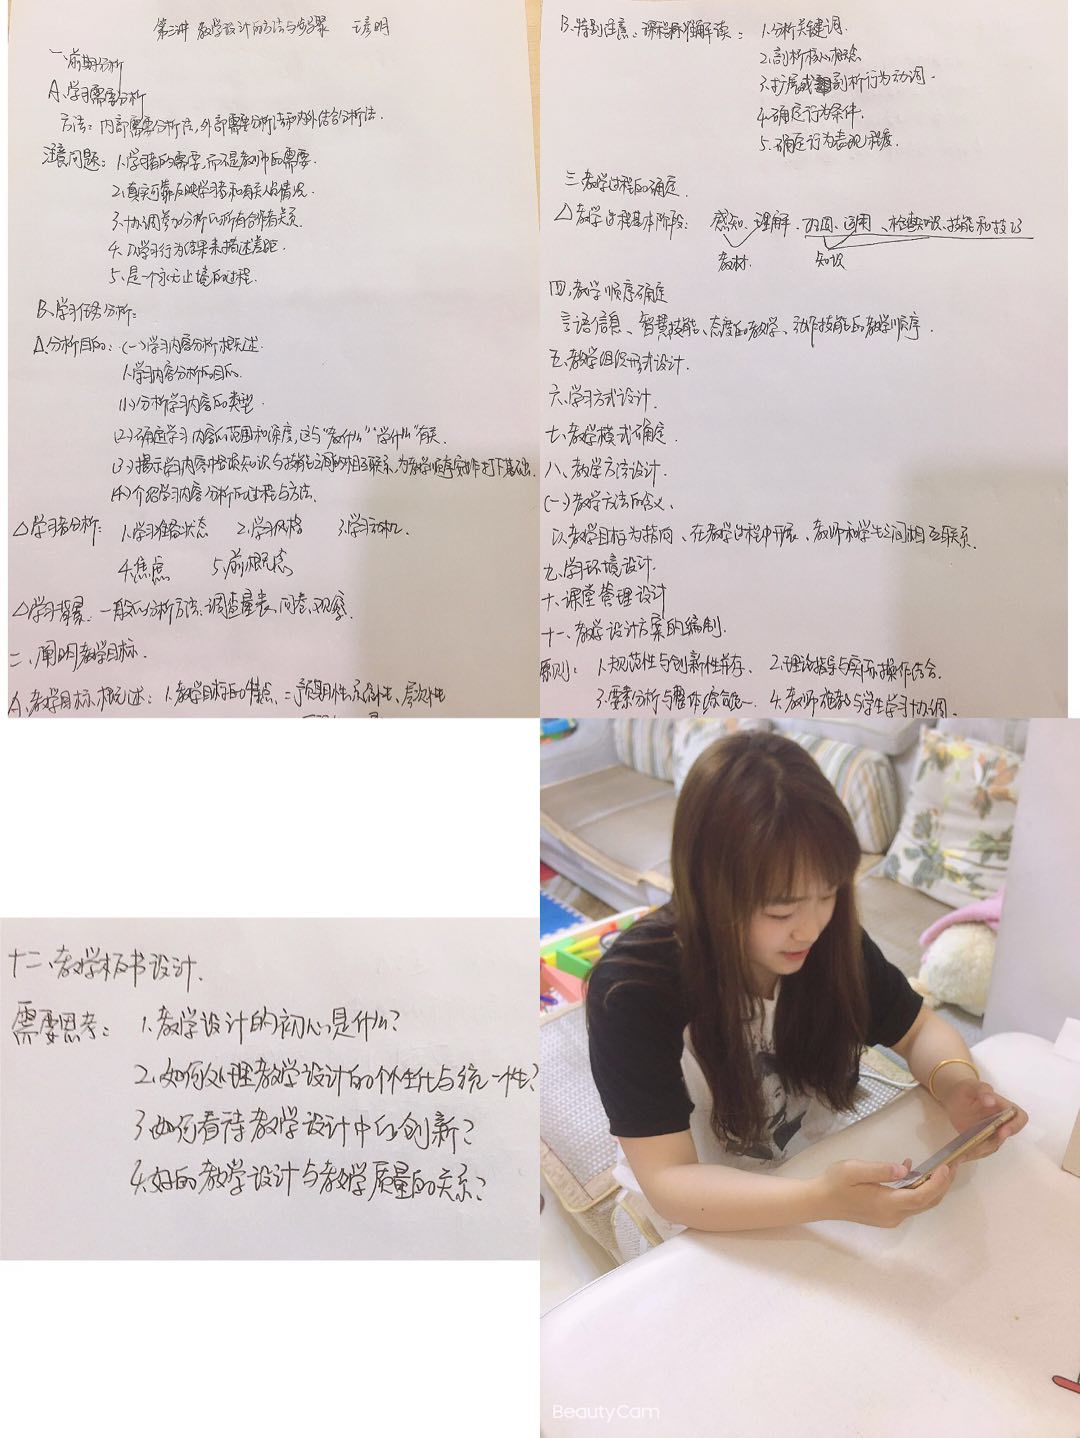 第三讲 教学设计的方法与步骤 王彦明
一、前期分析
A、学习需要分析
方法：内部需要分析法，外部需要分析法和内外结合分析法．
注意问题：1、学习者的需要，而不是教师的需要．
2、真实可靠反映学习者和有关人员情况．
3、协调参加分析的所有合作者关系．
4、以学习行为结果来描述差距．
5、是一个永无止境的过程．
B、学习任务分析：
△分析目的：(一)学习内容分析概述．
1、学习内容分析的目的．
(1)分析学习内容的类型．
(2)确定学习内容的范围和深度，这与“教什么”“学什么”有关．
(3)揭示学习内容中各项知识与技能之间的相互联系，为教学顺序安排打下基础．
(4)介绍学习内容分析的过程与方法．
△学习者分析：1、学习准备状态 2、学习风格 3、学习动机．
4、焦虑 5、前概念
△学习背景：一般的分析方法：调查量表、问卷、观察．
二、阐明教学目标．
A、教学目标概述：1、教学目标的特点：预期性、系统性、层次性
B、特别注意、课程标准解读：1、分析关键词．
2、剖析核心概念
3、扩展或剖析行为动词．
4、确定行为条件．
5、确定行为表现程度．
三、教学过程的确定．
△教学过程基本阶段：感知、理解、巩固、运用、检查知识、技能和技巧
教材 知识
四、教学顺序确定
言语信息、智慧技能、态度的教学、动作技能的教学顺序．
五、教学组织形式设计．
六、学习方式设计．
七、教学模式确定．
八、教学方法设计．
(一)教学方法的含义．
以教学目标为指向、在教学过程中开展、教师和学生之间相互联系．
九、学习环境设计．
十、课堂管理设计
十一、教学设计方案的编制．
原则：1、规范性与创新性并存、2、理论指导与实际操作结合．
3、要素分析与整体综合统一 4、教师施教与学生学习协调．
十二、教学板书设计．
需要思考：1、教学设计的初心是什么？
2、如何处理教学设计的个性化与统一性？
3、如何看待教学设计中的创新？
4、好的教学设计与教学质量的关系？
BeautyCam